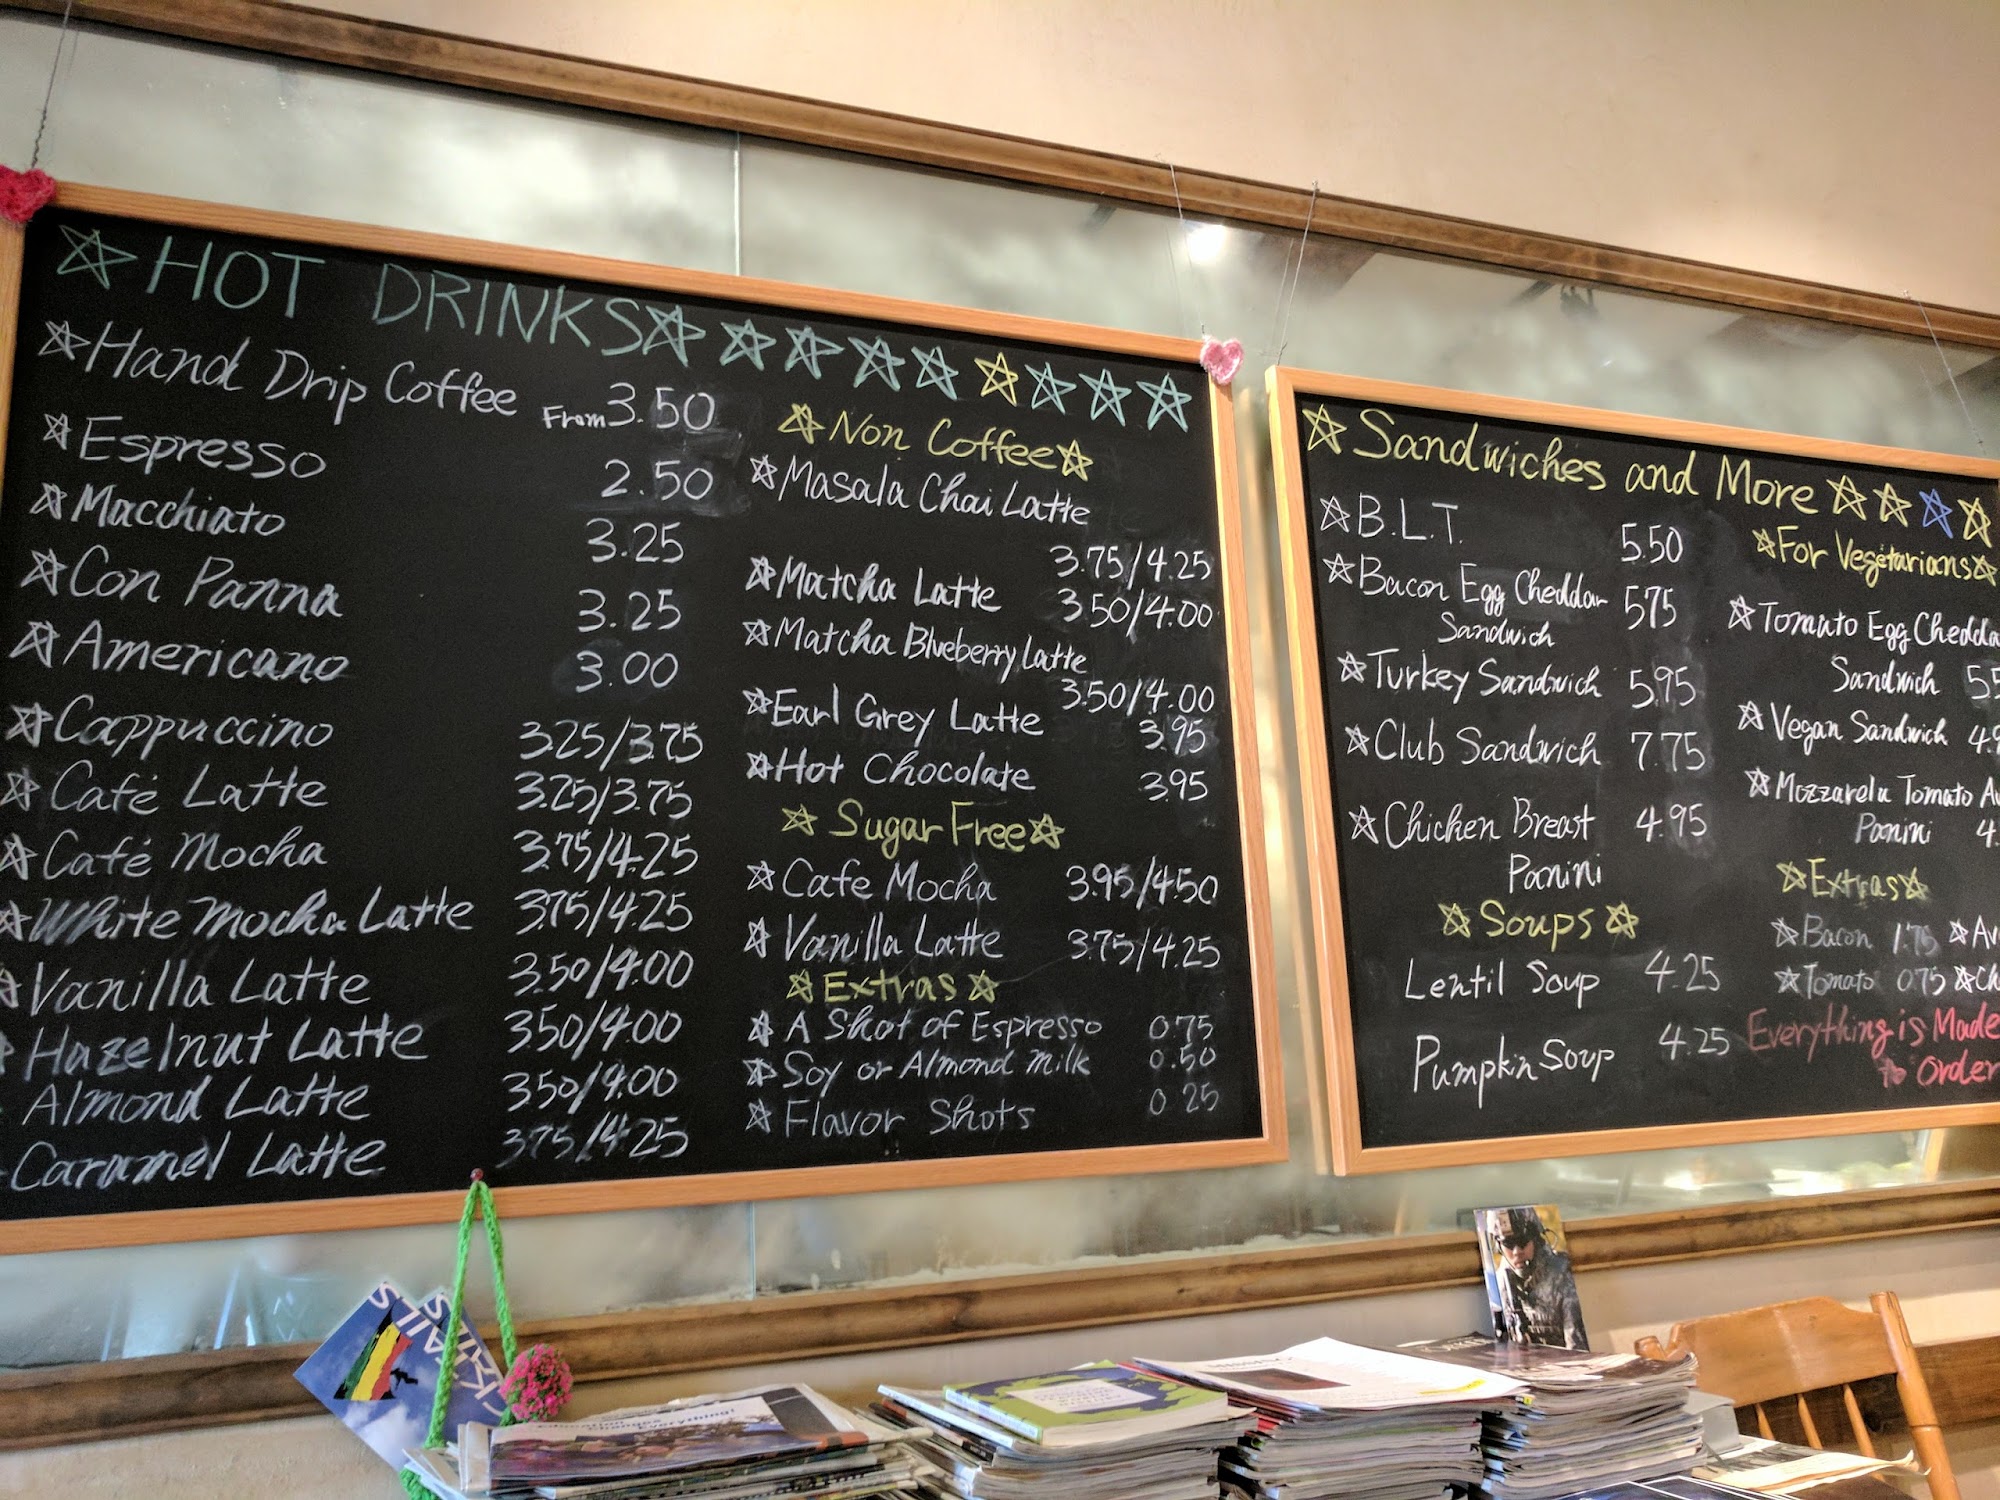 HOT DRINKS
Hand Drip Coffee From 3.50
Espresso 2.50
Macchiato 3.25
Con Panna 3.25
Americano 3.00
Cappuccino 3.25/3.75
Café Latte 3.25/3.75
Café Mocha 3.75/4.25
White Mocha Latte 3.75/4.25
Vanilla Latte 3.50/4.00
Hazelnut Latte 350/4.00
Almond Latte 350/4.00
Caramel Latte 375/4.25
Non Coffee
Masala Chai Latte
3.75/4.25
Matcha Latte 3.50/4.00
Matcha Blueberry Latte
3.50/4.00
Earl Grey Latte 3.95
Hot Chocolate 3.95
Sugar Free
Cafe Mocha 3.95/4.50
Vanilla Latte 3.75/4.25
Extras
A Shot of Espresso 0.75
Soy or Almond Milk 0.50
Flavor Shots 0 25
Sandwiches and More
B.L.T. 5.50
Bacon Egg Cheddar 575
Sandwich
Turkey Sandwich 5.95
Club Sandwich 7.75
Chicken Breast 4.95
Panini
Soups
Lentil Soup 4.25
Pumpkin Soup 4.25
For Vegetarians
Tomato Egg Chedda
Sandwich 5.5
Vegan Sandwich 4.9
Mozzarela Tomato Av
Panini 4.
Extras
Bacon 1.75 Av
Tomato 0.75 Ch
Everything is Made
to Order